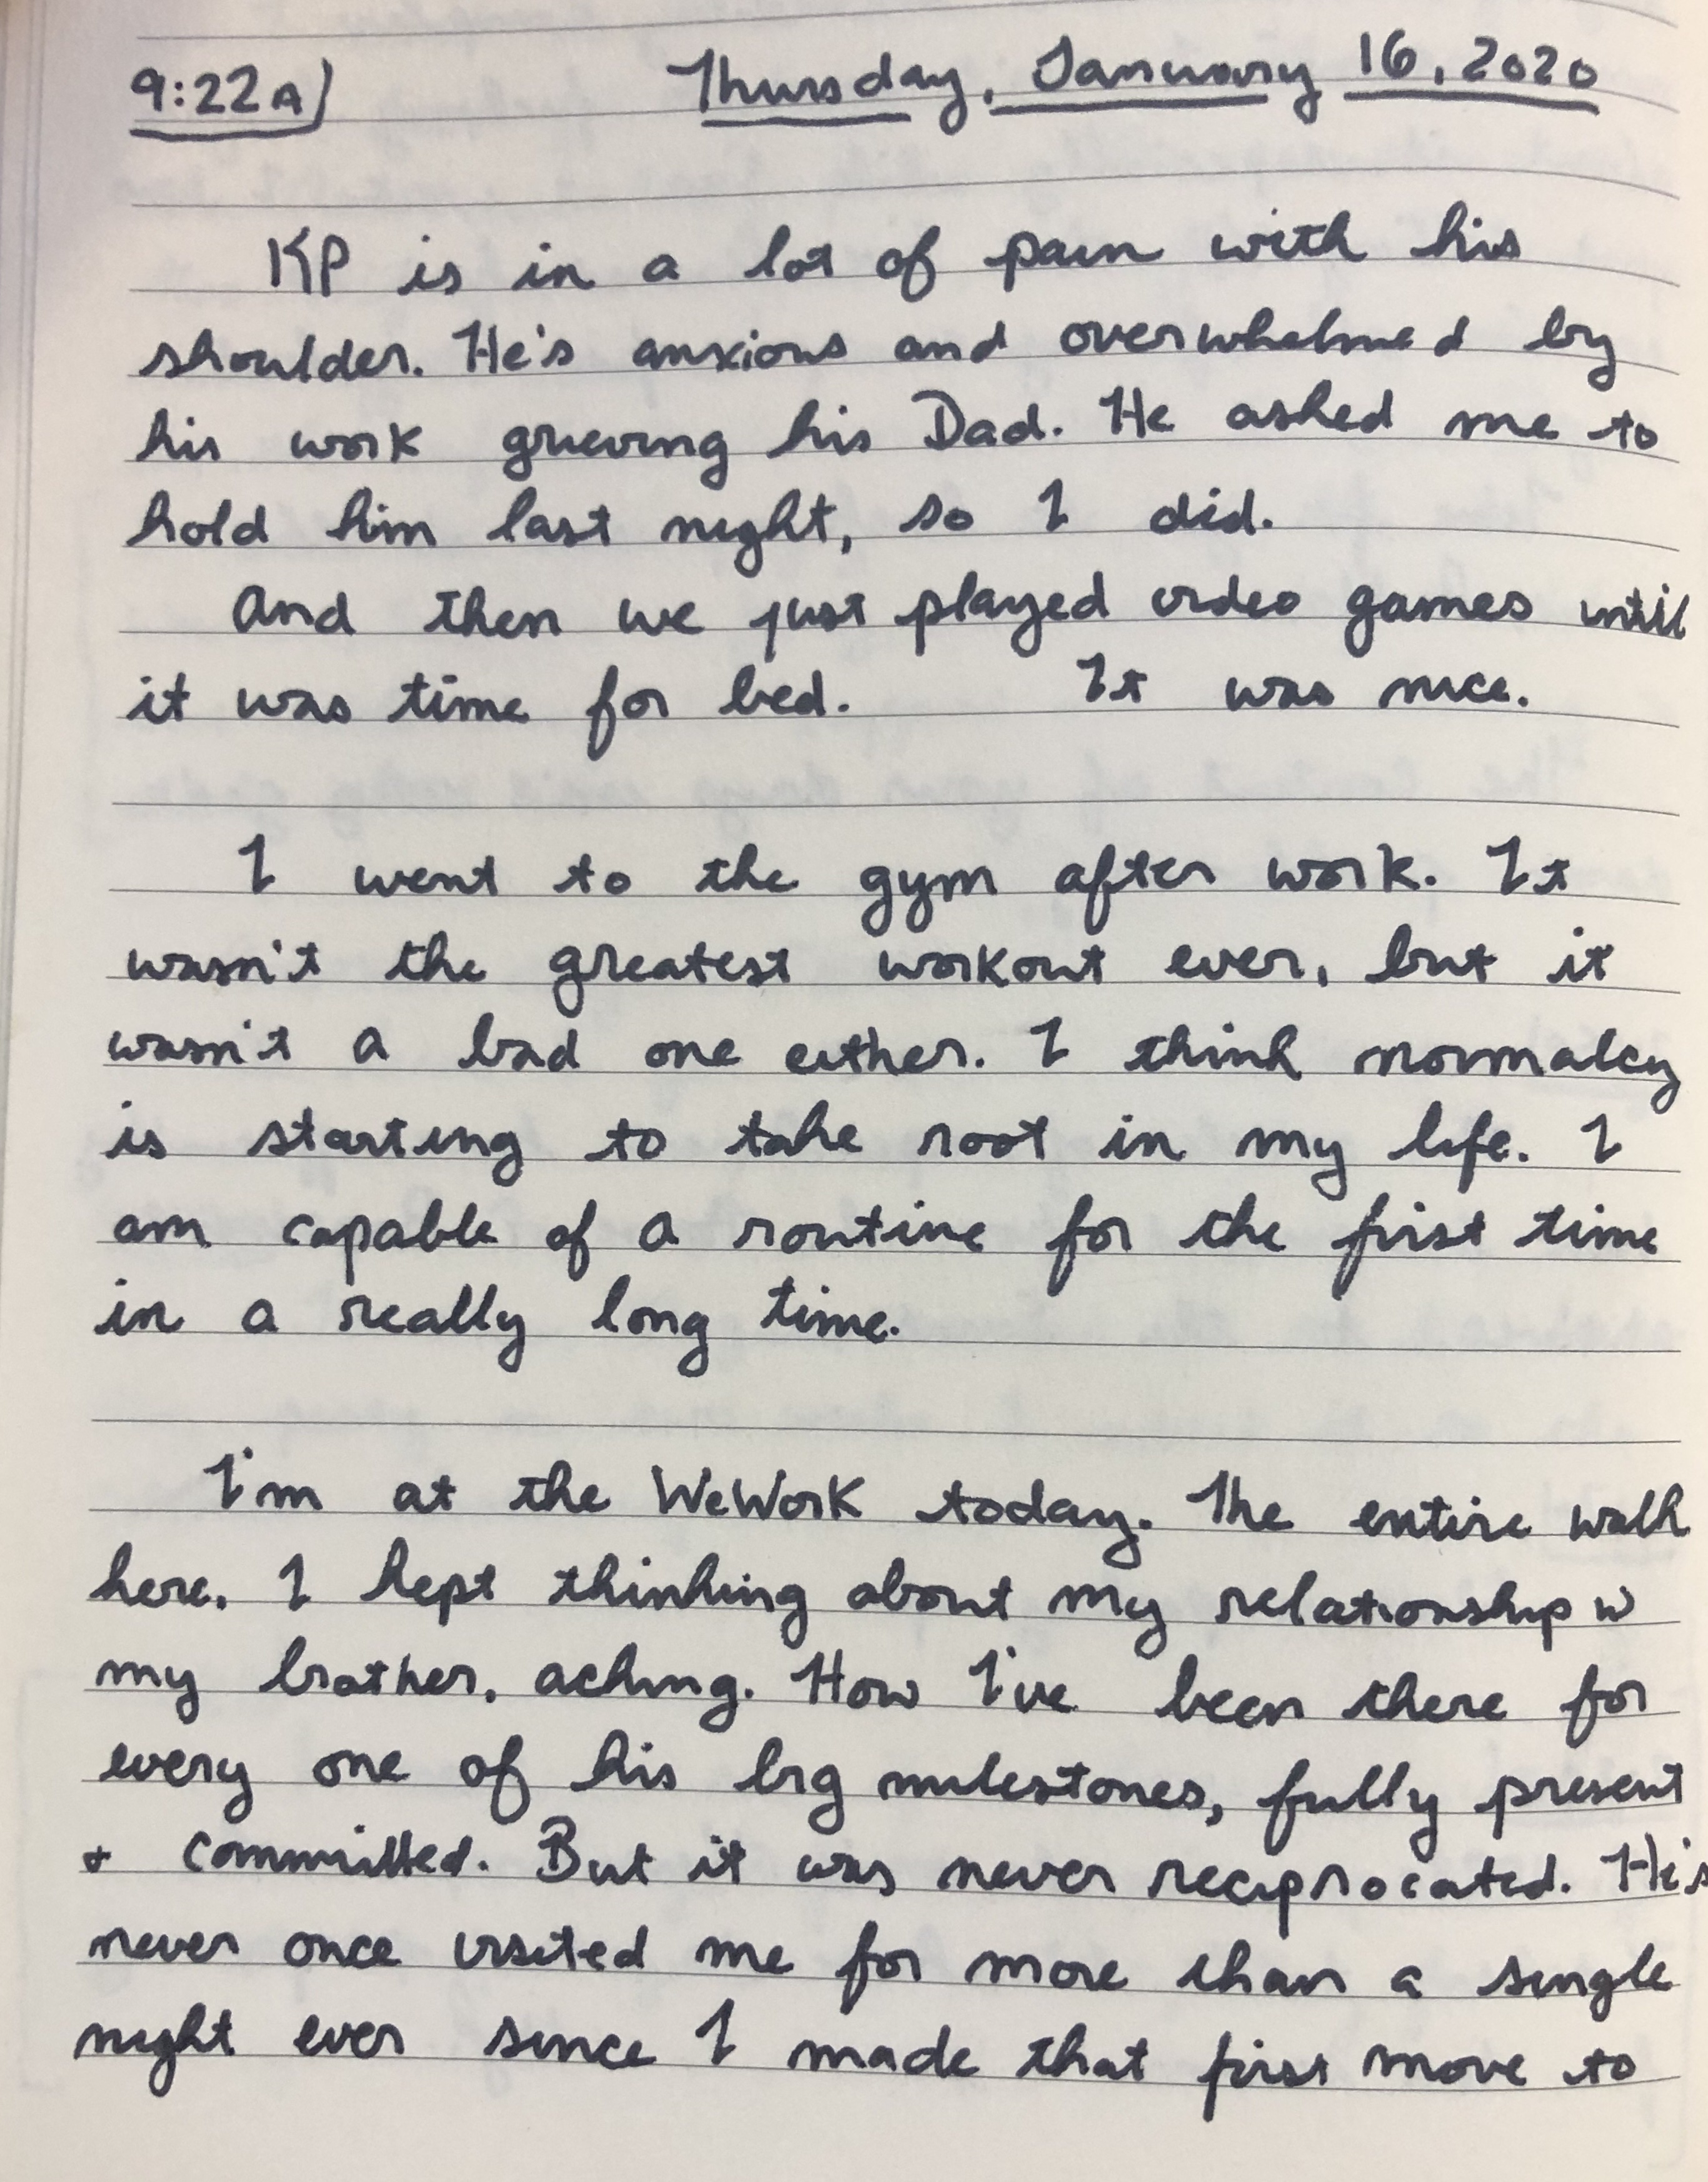 9:22A)
Thursday, January 16, 2020
KP is in a lot of pain with his
shoulder. He's anxious and overwhelmed by
his work grieving his Dad. He asked me to
hold him last night, so I did.
And then we just played video games until
it was time for bed. It was nice.
I went to the gym after work. It
wasn't the greatest workout ever, but it
wasn't a bad one either. I think normalcy
is starting to take root in my life. I
am capable of a routine for the first time
in a really long time.
I'm at the WeWork today. The entire walk
here, I kept thinking about my relationship w
my brother, aching. How I've been there for
every one of his big milestones, fully present
+ committed. But it was never reciprocated. He's
never once visited me for more than a single
night ever since I made that first move to